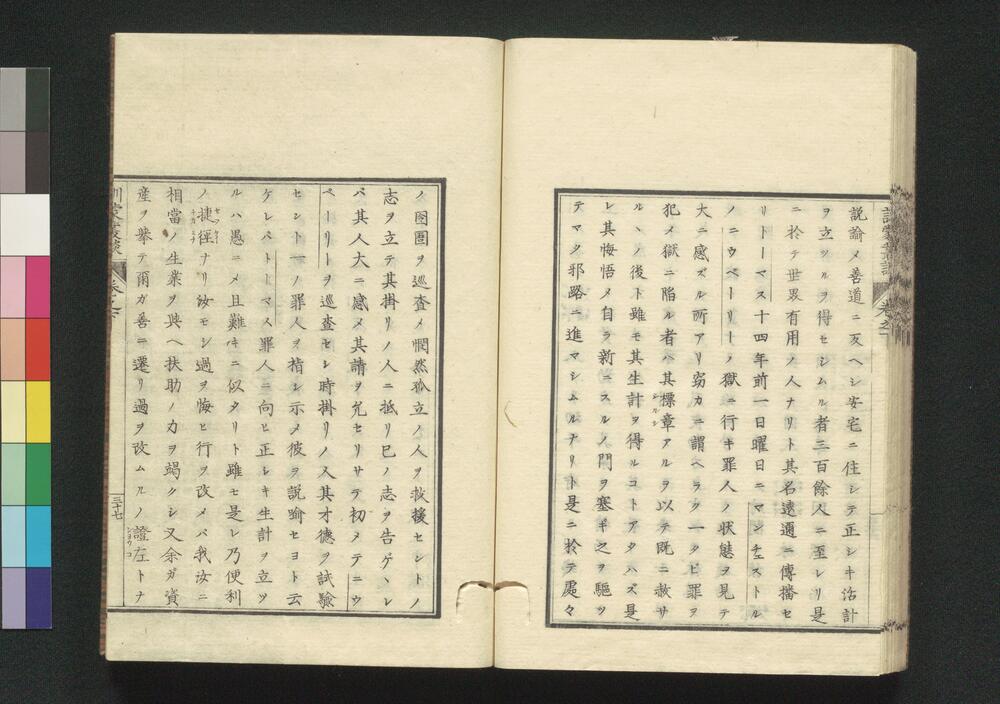 説諭メ善道ニ反ヘシ安宅ニ住シテ正シキ活計
ヲ立ツルヲ得セシムル者三百餘人ニ至レリ是
ニ於テ世界有用ノ人ナリト其名遠邇ニ傳播セ
リトーマス十四年前一日曜日ニマンチェストル
ノニウベーリーノ獄ニ行キ罪人ノ状態ヲ見テ
大ニ感ズル所アリ窃カニ謂ヘラク一タビ罪ヲ
犯メ獄ニ陥ル者ハ其標章アルヲ以テ既ニ赦サ
ルヽノ後ト雖モ其生計ヲ得ルコトアタハズ是
レ其悔悟メ自ラ新ニスルノ門ヲ塞ギ之ヲ驅ツ
テマタ邪路ニ進マシムルナリト是ニ於テ處々
ノ囹圄ヲ巡査メ憫然孤立ノ人ヲ救援セントノ
志ヲ立テ其掛リノ人ニ抵リ己ノ志ヲ告ゲヽレ
バ其人大ニ感メ其請ヲ允セリサテ初メテニウ
ベーリーヲ巡査セシ時掛リノ人其才德ヲ試驗
セント一ノ罪人ヲ指シ示メ彼ヲ説喻セヨト云
ケレバトーマス罪人ニ向ヒ正シキ生計ヲ立ツ
ルハ愚ニメ且難キニ似タリト雖モ是レ乃便利
ノ捷徑ナリ汝モシ過ヲ悔ヒ行ヲ改メバ我汝ニ
相當ノ生業ヲ與ヘ扶助ノ力ヲ竭クシ又余ガ資
産ヲ擧テ爾ガ善ニ遷リ過ヲ改ムルノ證左トナ
三十七